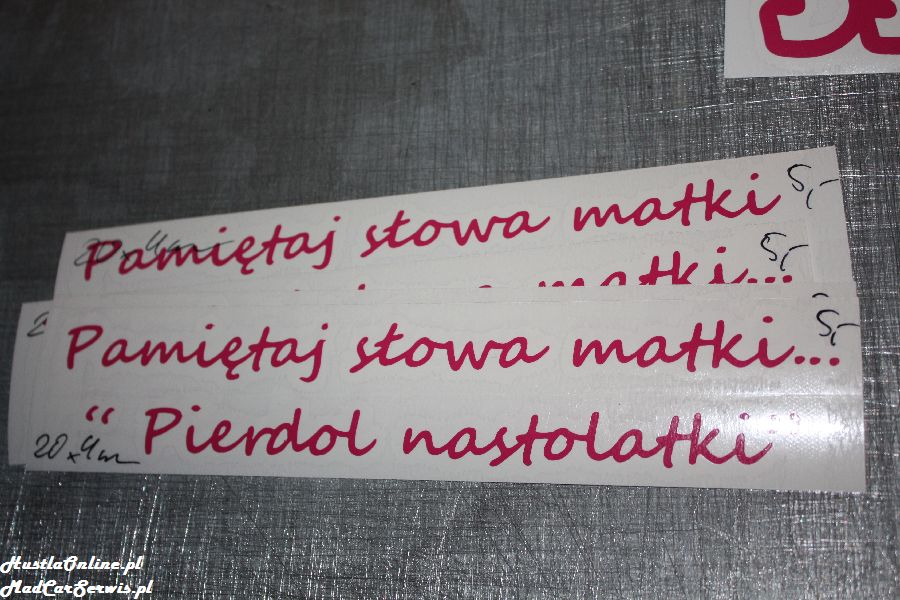 Pamiętaj słowa matki
5,-
5,-
matki...
Pamiętaj słowa matki...
5,-
“ Pierdol nastolatki”
20x4cm
HustlaOnline.pl
MadCarSerwis.pl